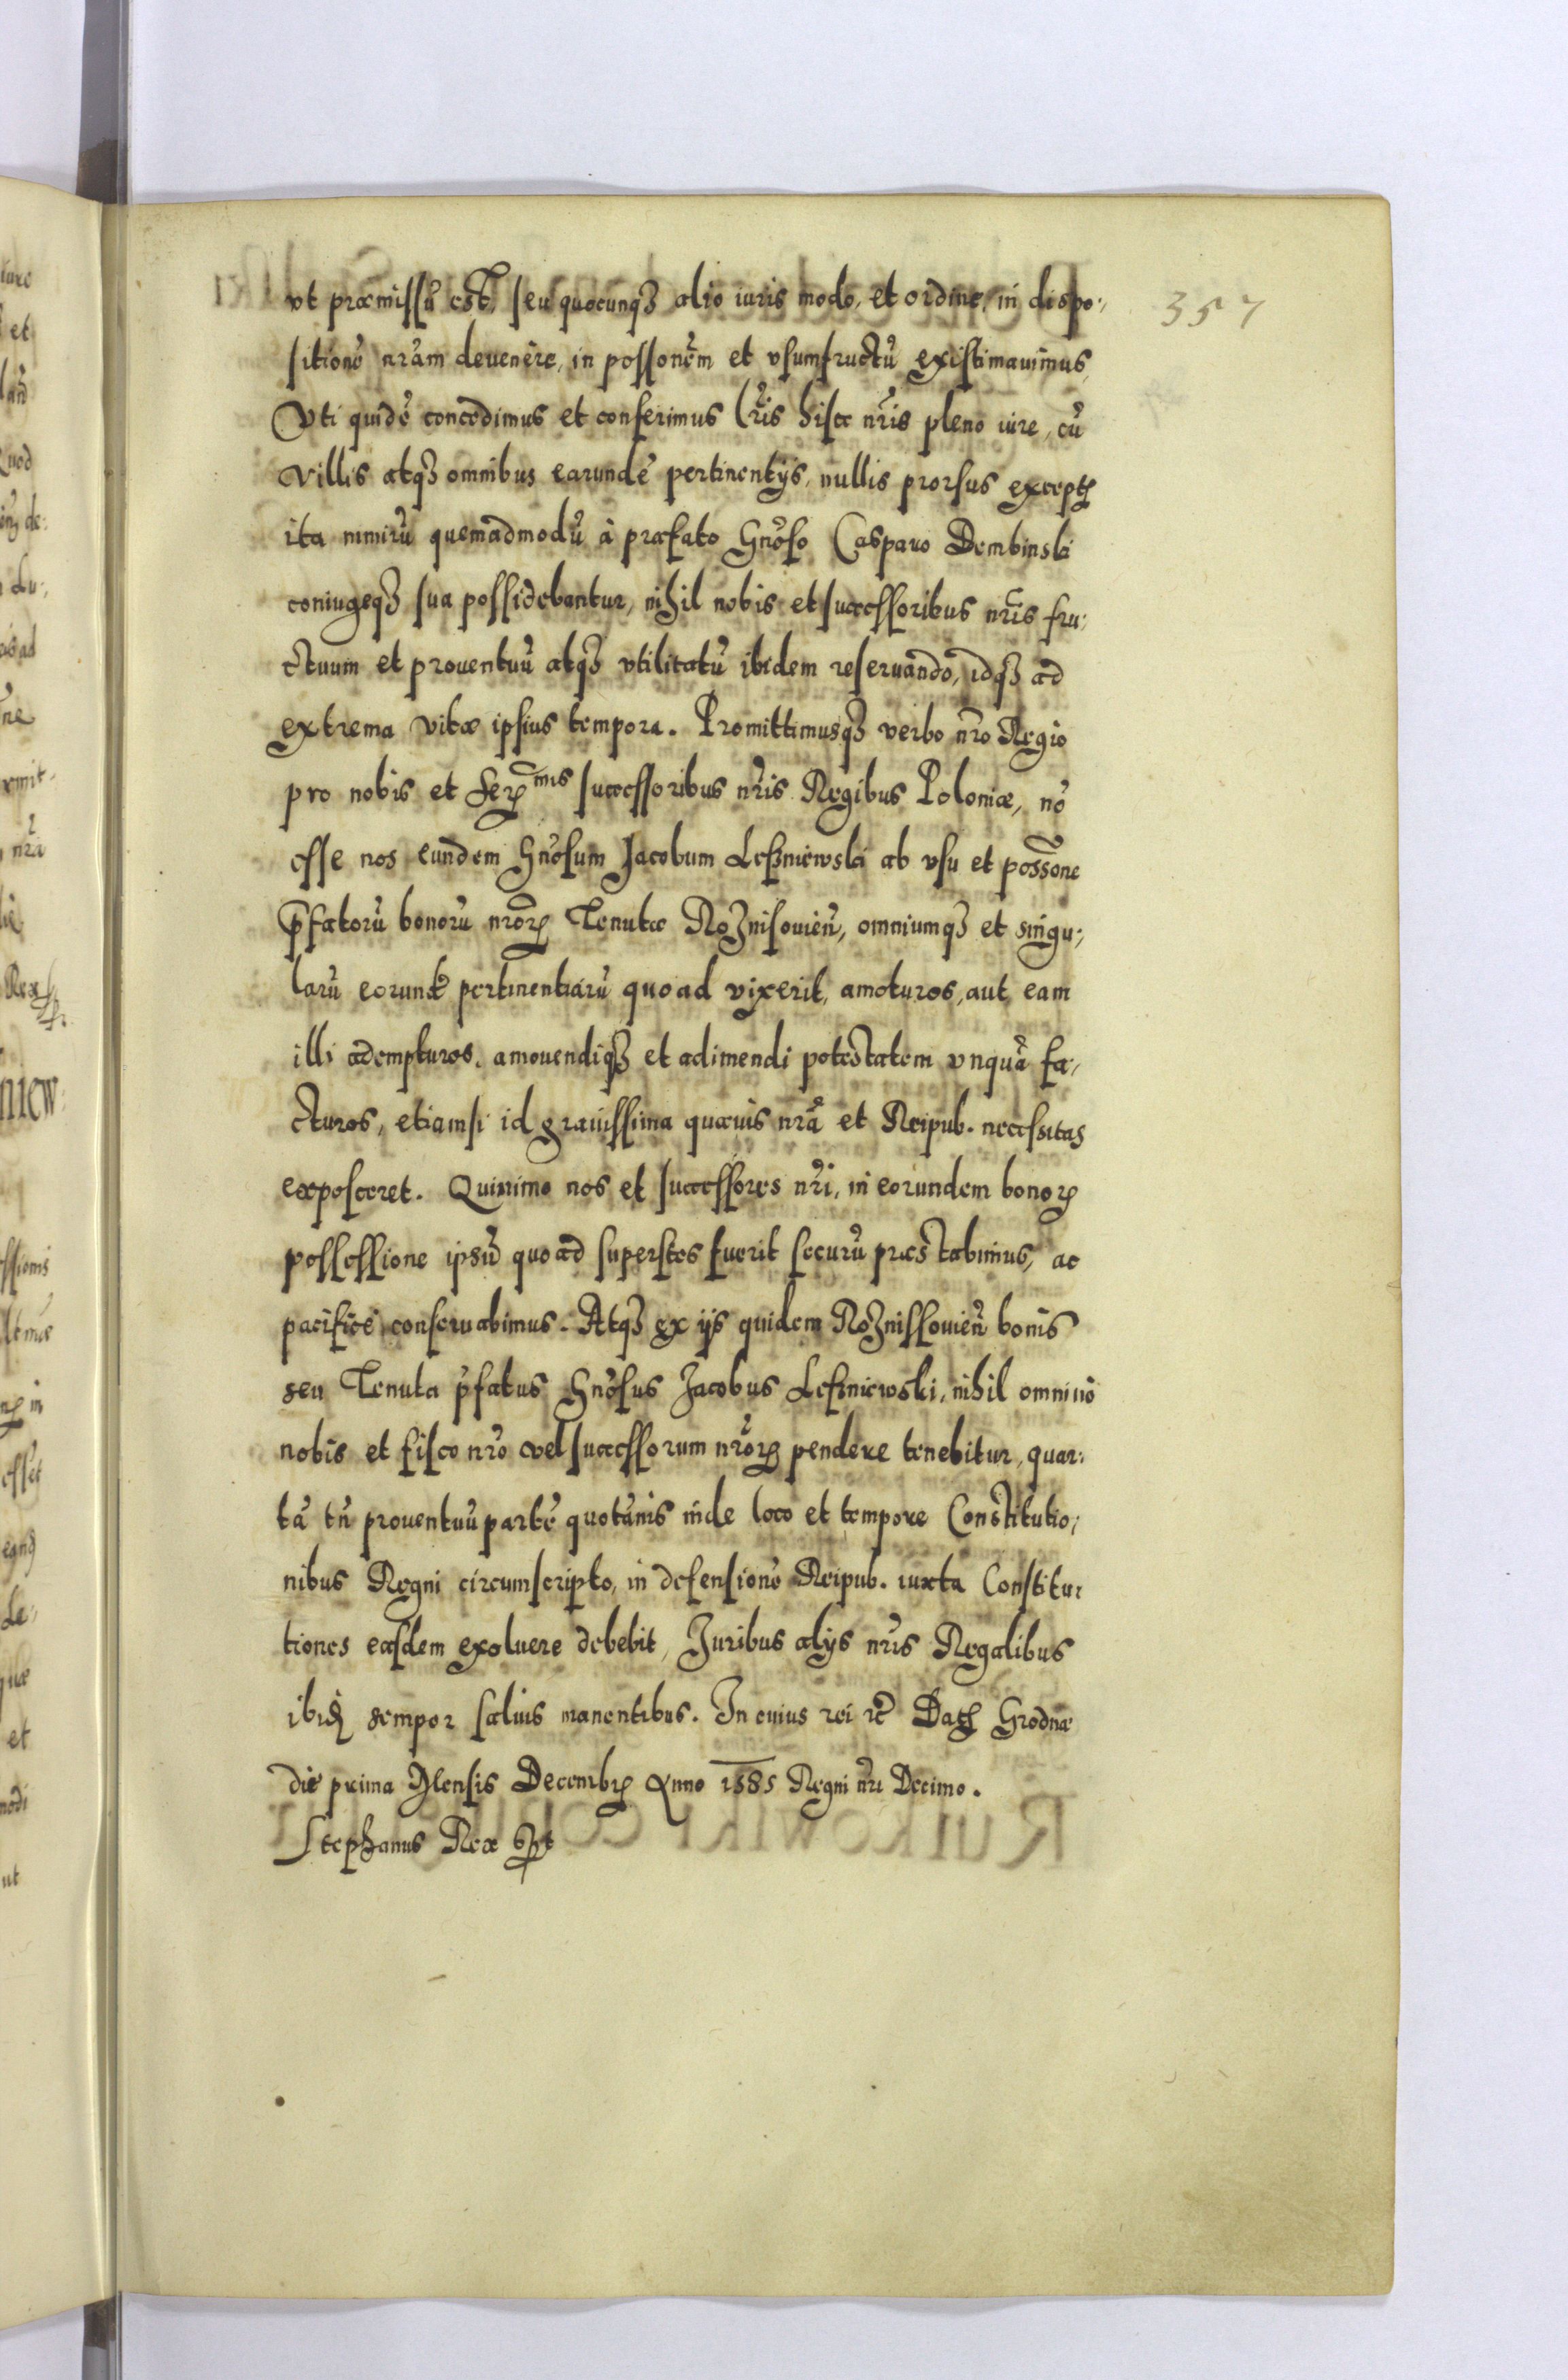 357
ut præmissũ est, seu quocunqȝ alio iuris modo, et ordine, in dispo,
sitionẽ nrãm devenêre, in possonẽm et vsumfructũ existimavimus,
Vti quidẽ concedimus et conferimus Lrĩs hisce nrĩs pleno iure, cũ
villis atqȝ omnibus earundẽ pertinentijs, nullis prorsus exceptꝭ
ita nimirũ quemadmodũ à præfato Gnõso Casparo Dembinski
coniugeqȝ sua possidebantur, nihil nobis et successoribus nrĩs fru,
ctuum et proventuũ atqȝ vtilitatũ ibidem reservando, idqȝ ad
extrema vitæ ipsius tempora. Promittimusqȝ verbo nrõ Regio
pro nobis et Serꝭmis successoribus nrĩs Regibus Poloniæ, nõ
esse nos eundem Gnõsum Jacobum Leßniewski ab vsu et possõne
p̃fatorũ bonorũ nrõꝝ Tenutæ Roznisovieñ, omniumqȝ et singu,
larũ eorund̃ pertinentiarũ quoad vixerit, amoturos, aut eam
illi adempturos, amovendiqȝ et adimendi potestatem vnquã fa,
cturos, etiamsi id gravissima quævis nrã et Reipub. necessitas
exposceret. Quinimo nos et successores nrĩ, in eorundem bonoꝝ
possessione ipsũ quoad superstes fuerit securũ præstabimus, ac
pacificè conservabimus. Atqȝ ex ijs quidem Roznissovieñ bonis
seu Tenuta p̃fatus Gnõsus Jacobus Leßniewski, nihil omnino
nobis et fisco nrõ vel successorum nrõꝝ pendere tenebitur, quar,
tã tñ proventuũ partẽ quotãnis inde loco et tempore Constitutio,
nibus Regni circumscripto, in defensionẽ Reipub. iuxta Constitu,
tiones easdem exoluere debebit, Juribus alijs nrĩs Regalibus
ibidꝭ semper salvis manentibus. In cuius rei rc̃ Datꝭ Grodnæ
die prima Mensis Decembrꝭ Anno 1585 Regni nrĩ Decimo.
Stephanus Rex sst